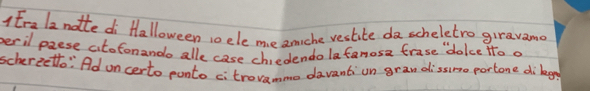 1 Era la notte di Halloween io e le mie amiche vestite da scheletro giravamo
per il paese citofonando alle case chiedendo la famosa frase "dolcetto o
scherzetto". Ad un certo punto ci trovammo davanti un grandissimo portone di legno